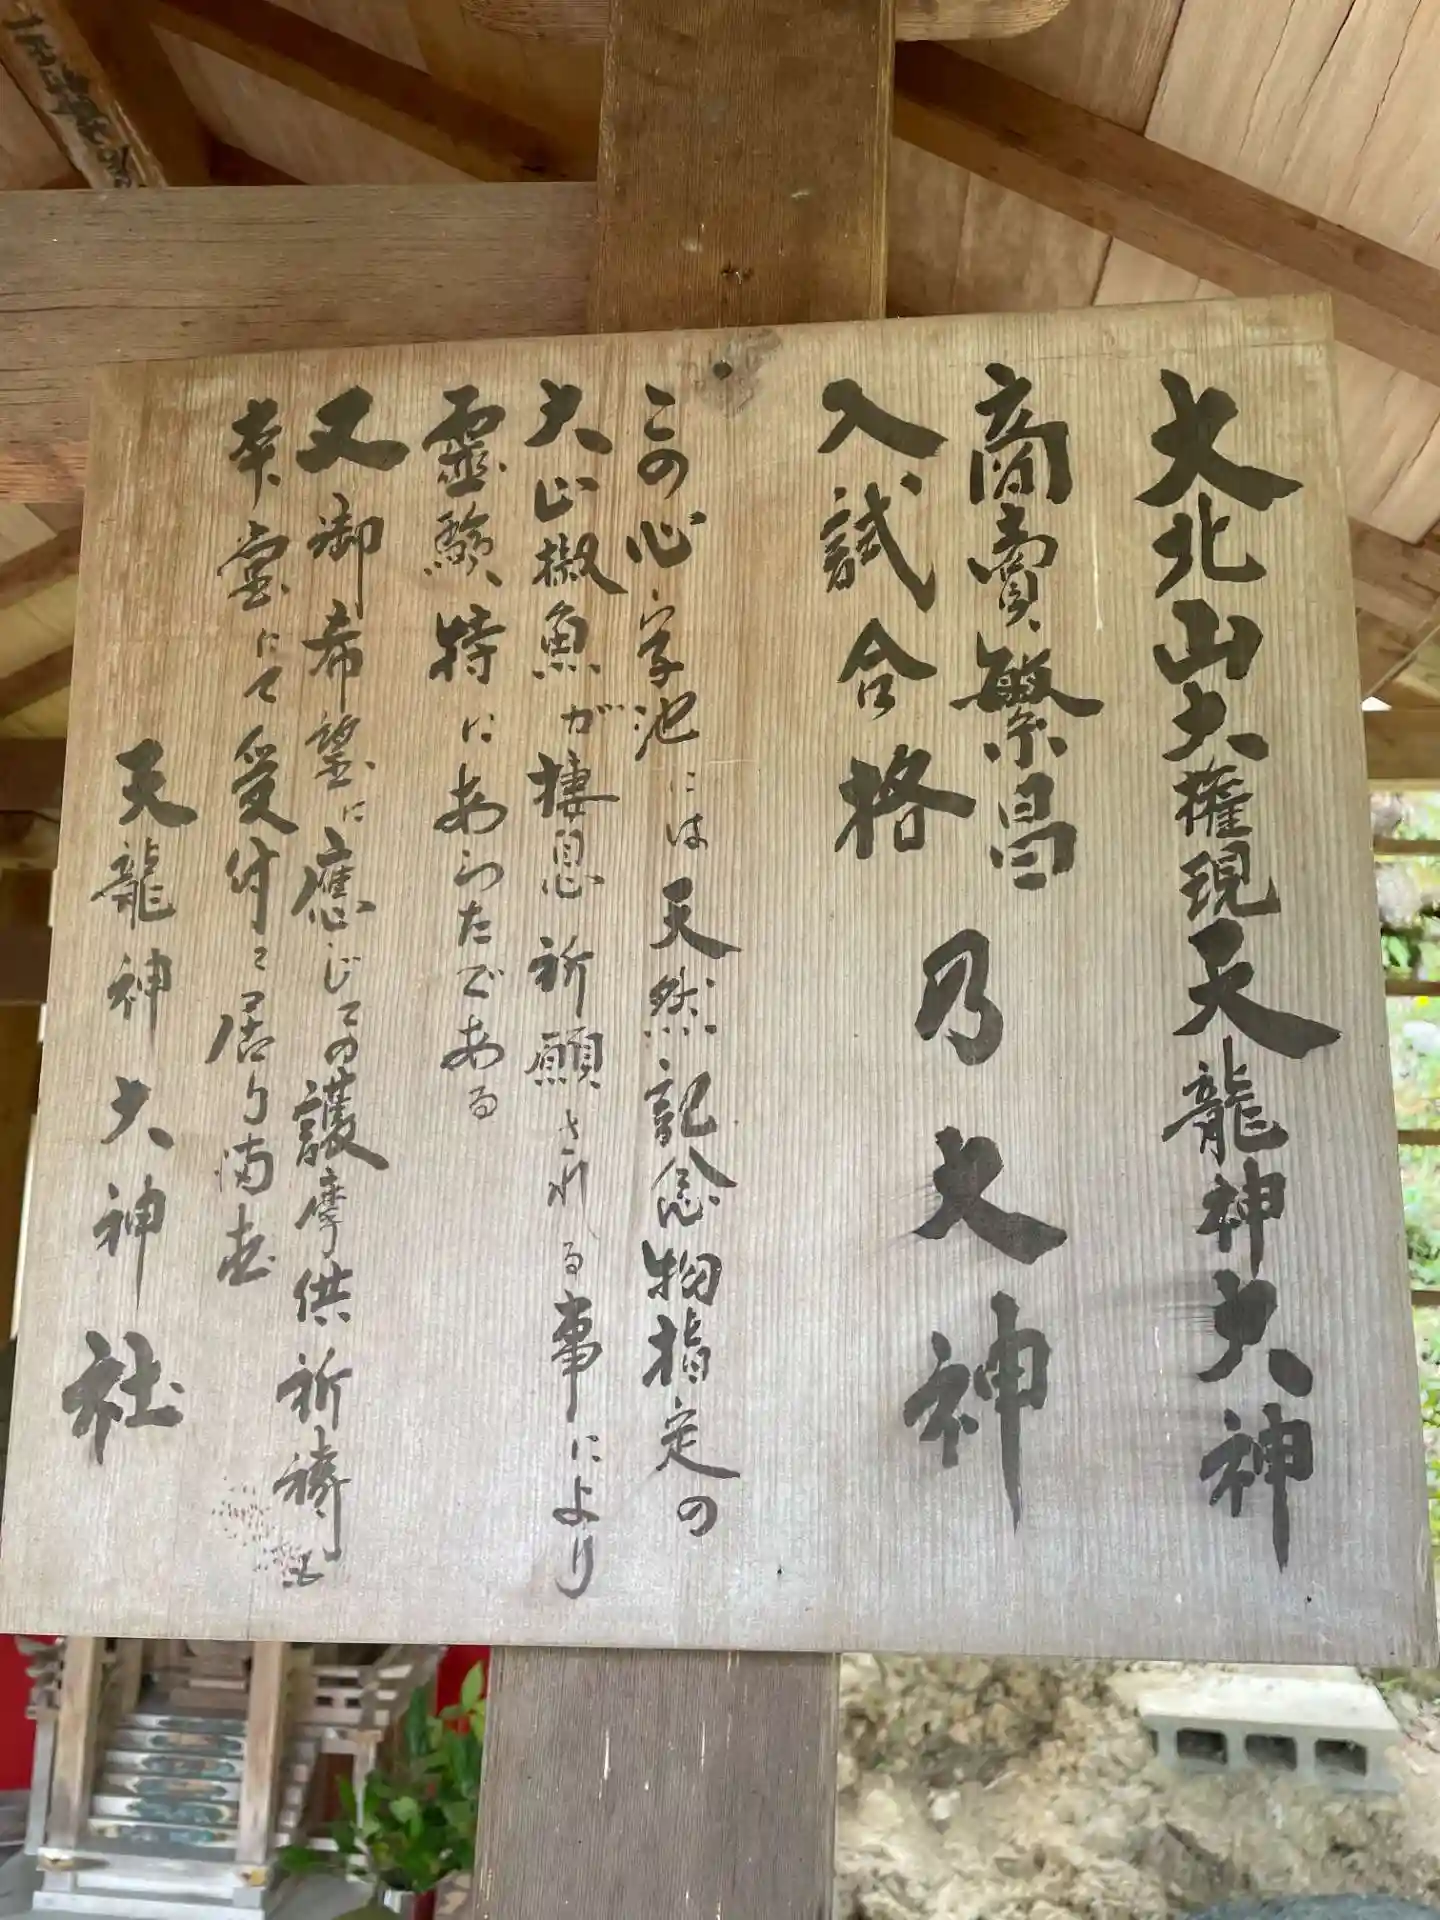 大北山大権現天龍神大神
商賣繁昌
入試合格
乃大神
この心字池には天然記念物指定の
大山椒魚が棲息祈願される事により
霊験特にあらたである
又御希望に應じての護摩供祈祷も
本堂にて受付て居り満春
天龍神大神社